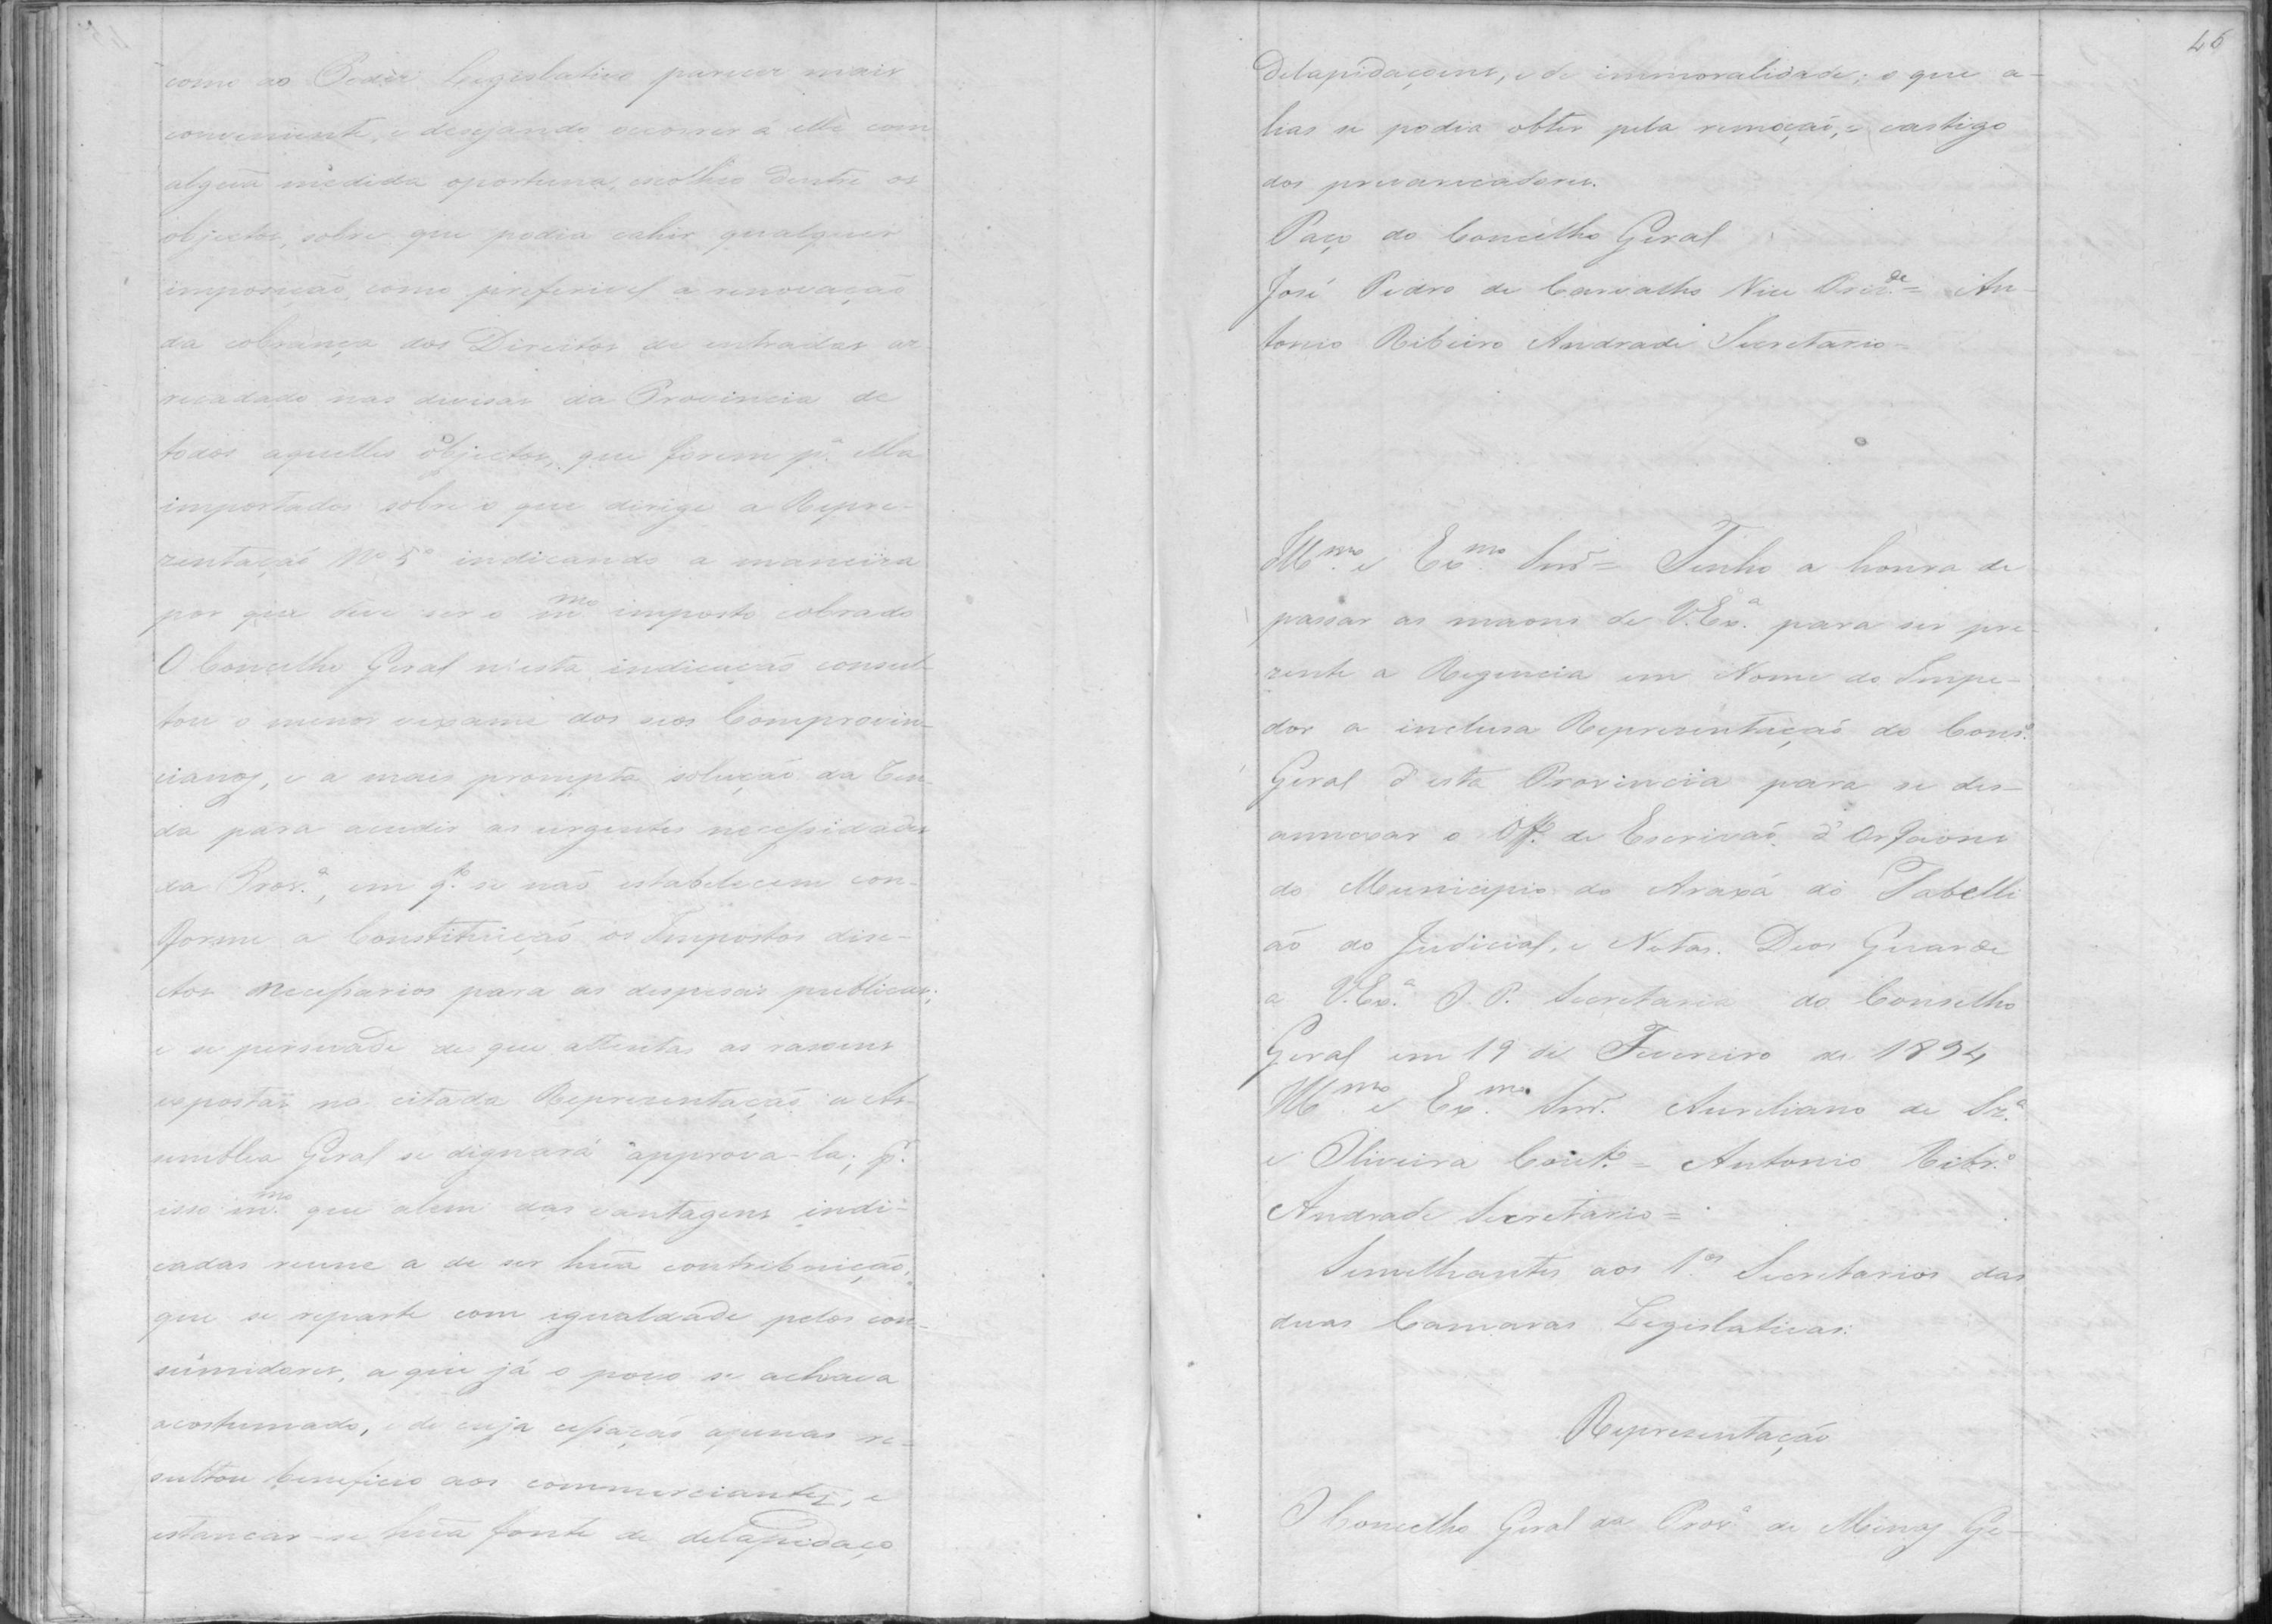 como ao Poder Legislativo parecer mais
conveniente, e desejando occorrer á elle com
algũa medida oportuna, escolheo dentre os
objectos, sobre que podia cahir qualquer
imposição, como preferivel a renovação
da cobrança dos Direitos de entradas ar-
recadado nas divisas da Provincia de
todos aquelles objectos, que forem pª. ella
importados sobre o que dirige a Repre-
zentação Nº 5º indicando a maneira
por que deve ser o mmo. imposto cobrado
O Concelho Geral n'esta indicação consul-
tou o menor vexame dos seos Comprovin-
cianos, e a mais prompta solução da
da para acudir as urgentes necessidades
da Prov.ª, em q.to se não estabelecem con-
forme a Constituição os Impostos dire-
ctos necessarios para as despesas publicas;
e se persuade de que attentas as rasoens
expostas na citada Representação a As-
semblea Geral se dignará approva-la; pr.
isso mmo. que alem das vantagens indi-
cadas reune a de ser hũa contribuição,
que se reparte com igualdade pelos con-
sumidores, a que já o povo se achava
acostumado, e de cuja cessação apenas re-
sultou beneficio aos commerciantes, e
estancar-se hũa fonte de delapidaço
45
delapidaçoens, e de immoralidade; o que a-
lias se podia obter pela remoção, e castigo
dos prevaricadores.
Paço do Concelho Geral
José Pedro de Carvalho Vice Prezde. = An-
tonio Ribeiro Andrade Secretario =
Illmo. e Exmo. Snr = Tenho a honra de
passar as maons de V.Exª. para ser pre-
zente a Regencia em Nome do Impe-
dor a inclusa Representação do Consº.
Geral d'esta Provincia para se des-
annexar o Offº. de Escrivão d'Orfaons
do Municipio do Araxá do Tabelli
ão do Judicial, e Notas. Deos Guarde
a V.Exª. O. P. Secretaria do Conselho
Geral em 19 de Fevereiro de 1834
Illmo. e Exmo. Snr. Aureliano de Sz.ª
e Oliveira Coutº. = Antonio Ribrº.
Andrade Secretario =
Semelhantes aos 1.os Secretarios das
duas Camaras Legislativas.
Representação
O Concelho Geral da Provª de Minas Ge-